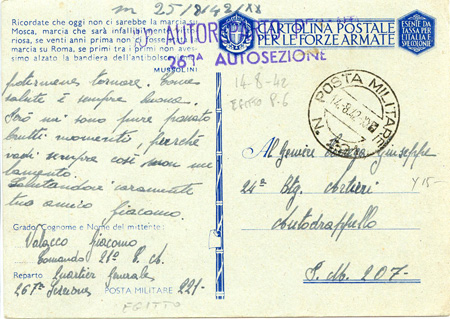 m 25/8/42/XX
Ricordate che oggi non ci sarebbe la marcia su
Mosca, marcia che sarà infallibilmente vitto-
riosa, se venti anni prima non ci
marcia su Roma, se primi tra i primi non aves-
simo alzato la bandiera dell'antibolsc
MUSSOLINI
8° AUTOR
267ª AUTOSEZIONE
CARTOLINA POSTALE
PER LE FORZE ARMATE
ESENTE DA
TASSA PER
L'ITALIA E
SVE COLONIE
14-8-42
P.6
POSTA MILITARE
N.
14.8.42
potermene tornare. Come
salute è sempre buona.
però ne sono pure passato
brutti momenti, perchè
vadi sempre così non me
lamento.
Salutandovi caramente
tuo amico Giacomo.
Al Geniere Giuseppe
24° Btg. Artieri
Autodrappello
P. M. 207-
Y15-
Grado, Cognome e Nome del mittente:
Giacomo
Comando 21° C.
Reparto Quartier Generale
267ª Sezione POSTA MILITARE 221-
EGITTO